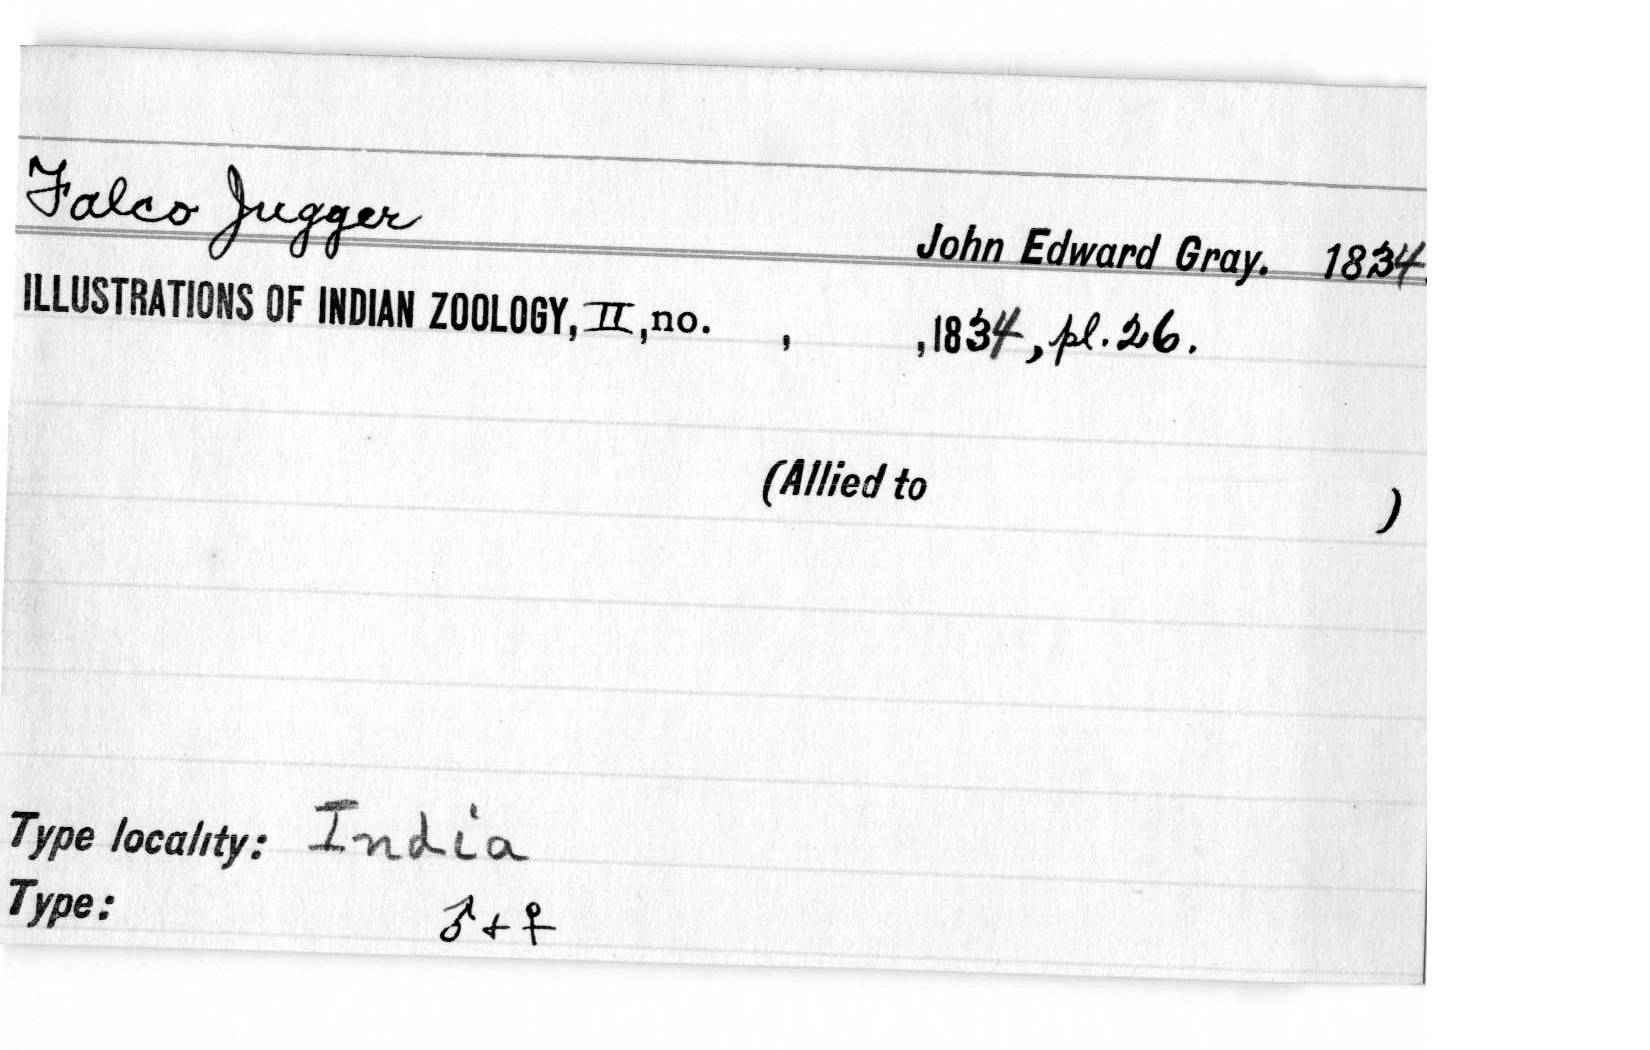 Falco Jugger
John Edward Gray. 1834.
ILLUSTRATIONS OF INDIAN ZOOLOGY, II, no. , ,1834, pl. 26.
(Allied to )
Type locality: India
Type: ♂ + ♀